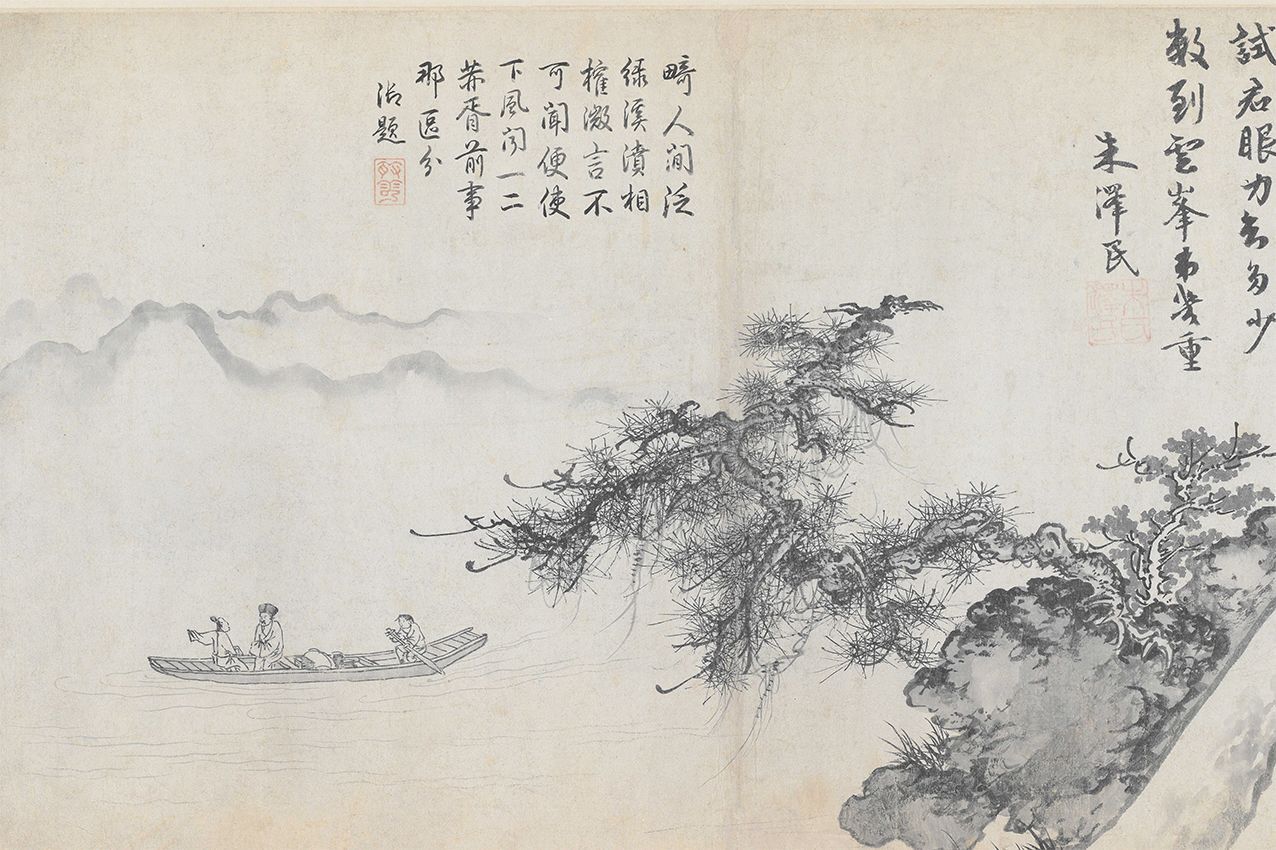 試君眼力知多少
數到雲峯第幾重
朱澤民
畸人閒泛
緑溪濆相
榷微言不
可聞便使
下風聞一二
華胥前事
那區分
治題